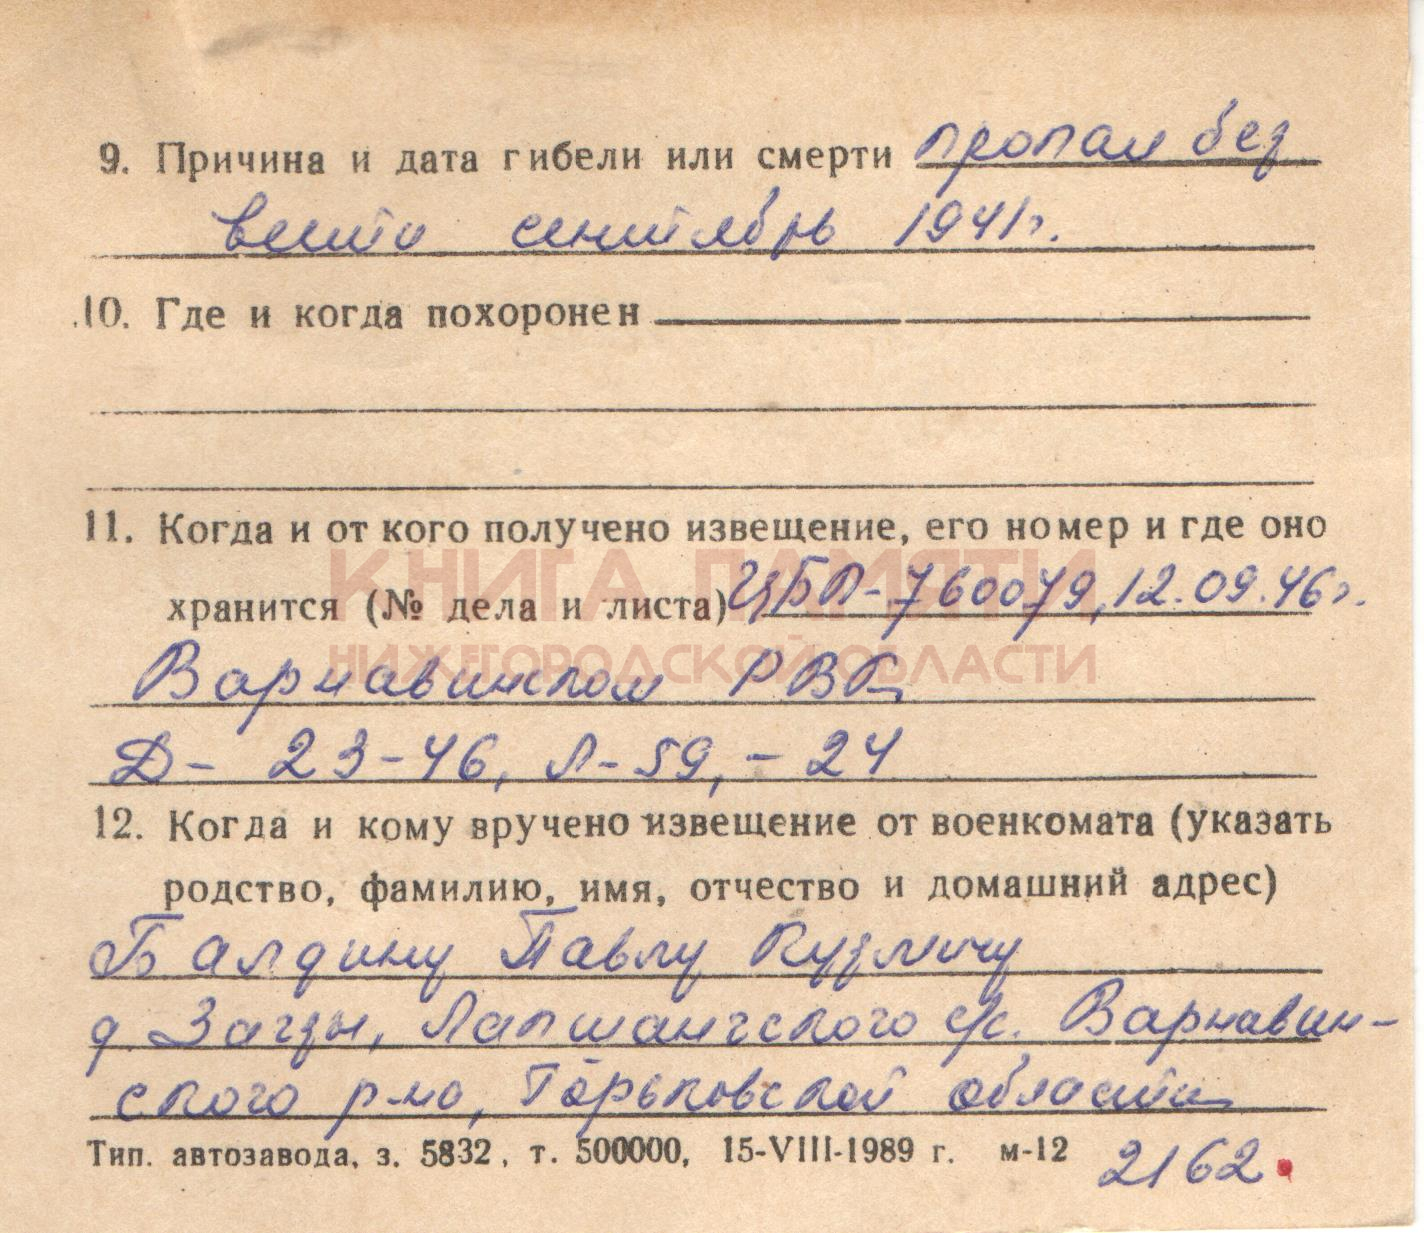 9. Причина и дата гибели или смерти пропал без
вести сентябрь 1941г.
10. Где и когда похоронен
11. Когда и от кого получено извещение, его номер и где оно
КНИГА ПАМЯТИ
хранится (№ дела и листа) ЦБП-760079, 12.09.46г.
НИЖЕГОРОДСКОЙ ОБЛАСТИ
Варнавинском РВК
Д- 23-46, Л-59, -24
12. Когда и кому вручено извещение от военкомата (указать
родство, фамилию, имя, отчество и домашний адрес)
Балдину Павлу Кузмичу
д. Лапшангского с/с. Варнавин-
ского р-но, Горьковской области
Тип. автозавода, з. 5832, т. 500000, 15-VIII-1989 г. м-12 2162.